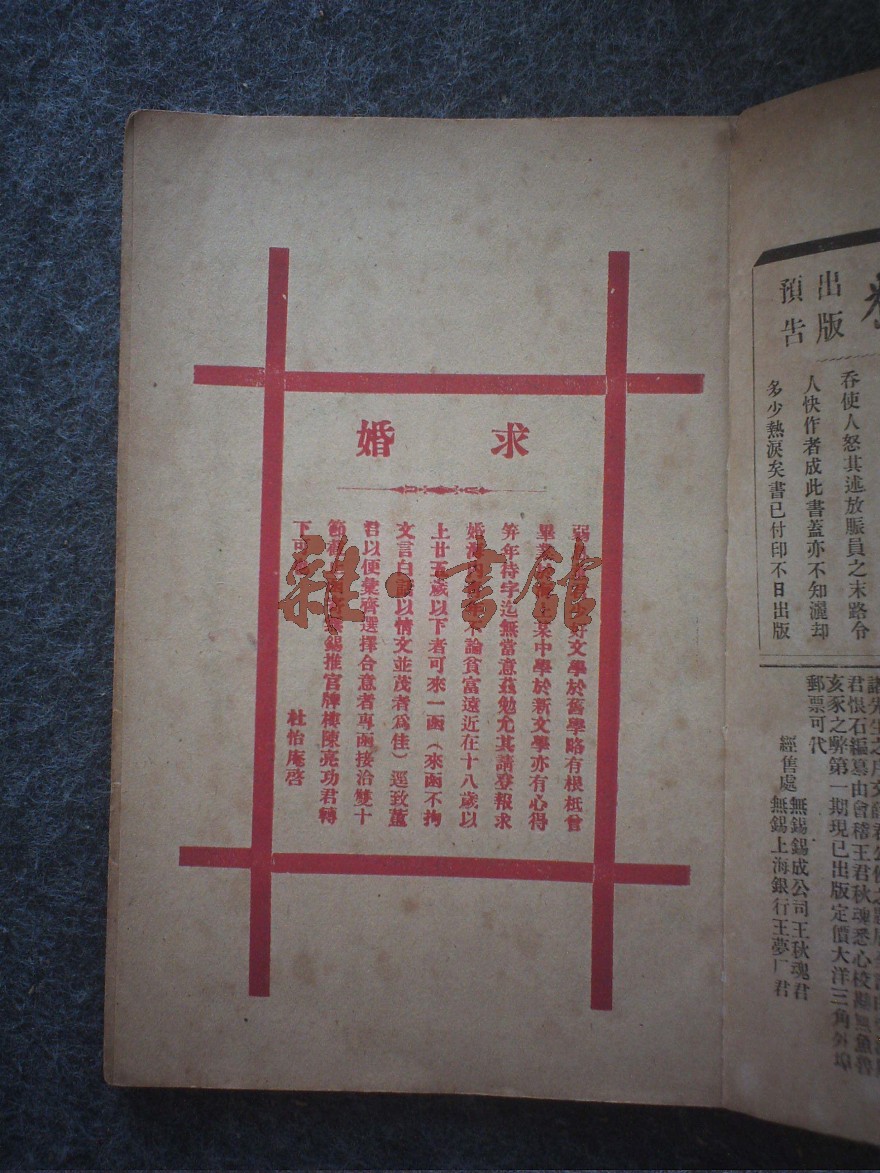 求婚
弱 好文學於舊學略有根柢曾
畢業 某中學於新文學亦有心得
笄年待字迄無當意茲勉允其請登報求
婚海內 不論貧富遠近在十八歲以
上廿五歲以下者可來一函(來函不拘
文言白話以情文並茂者爲佳)逕致蓋
君以便彙齊選擇合意者專函接洽雙十
節截止 無錫推官牌樓陳亮功君轉
下可
杜怡庵啓
雜·書館
出版
預告
吞使人怒其述放賑員之末路令
人快作者成此書蓋亦不知灑却
多少熱淚矣書已付印不日出版
君恨石編纂由會稽王君秋魂悉心校勘無魚魯
亥豕之弊第一期現已出版定價大洋三角外埠
郵票可代
經售處
無錫錫成公司王秋魂君
無錫上海銀行王夢厂君